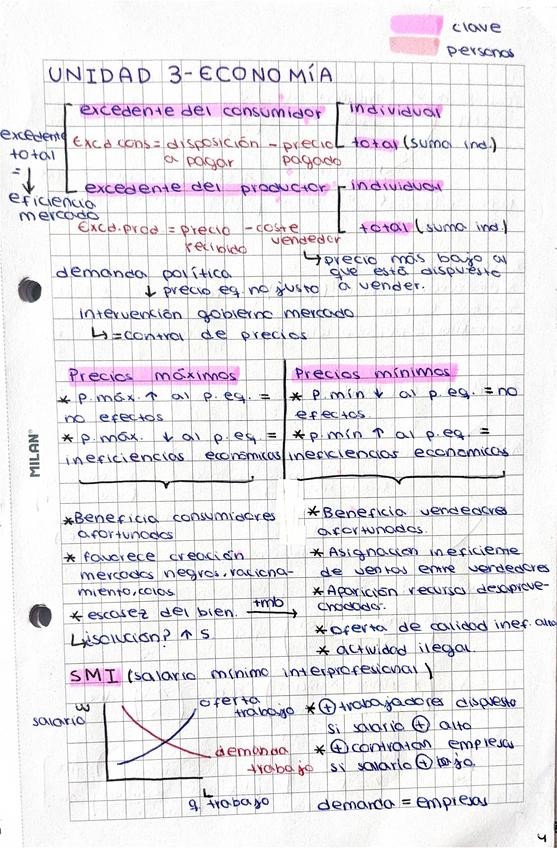 clave
personas
UNIDAD 3-ECONOMÍA
excedente del consumidor
individual
total (suma ind.)
Excd cons = disposición - precio
a pagar pagado
excedente total = ↓ eficiencia mercado
excedente del productor
individual
total (suma ind.)
Excd. prod = precio - coste
recibido vendedor
↳ precio más bajo al
que está dispuesto
a vender.
demanda política
↓ precio eq. no justo
intervención gobierno mercado
↳ = control de precios
Precios máximos
* P. máx. ↑ al p. eq. =
no efectos
* p. máx. ↓ al p. eq =
ineficiencias económicas
*Beneficia consumidores
afortunados
* favorece creación
mercados negros, raciona-
miento, colas
* escasez del bien. +mb →
↳ ¿solución? ↑ S
Precios mínimos
* P. mín ↓ al p. eq. = no
efectos
* p. mín ↑ al p. eq. =
ineficiencias economicas
* Beneficia vendedores
afortunados.
* Asignación ineficiente
de ventas entre vendedores
* Aparición recurso desaprove-
chados.
* oferta de calidad inef. alta
* actividad ilegal.
SMI (salario mínimo interprofesional)
W
salario
oferta
trabajo
demanda
trabajo
L
q trabajo
* + trabajadores dispuesto
si salario + alto
* + contratan empresas
si salario + bajo.
demanda = empresas
MILAN
4